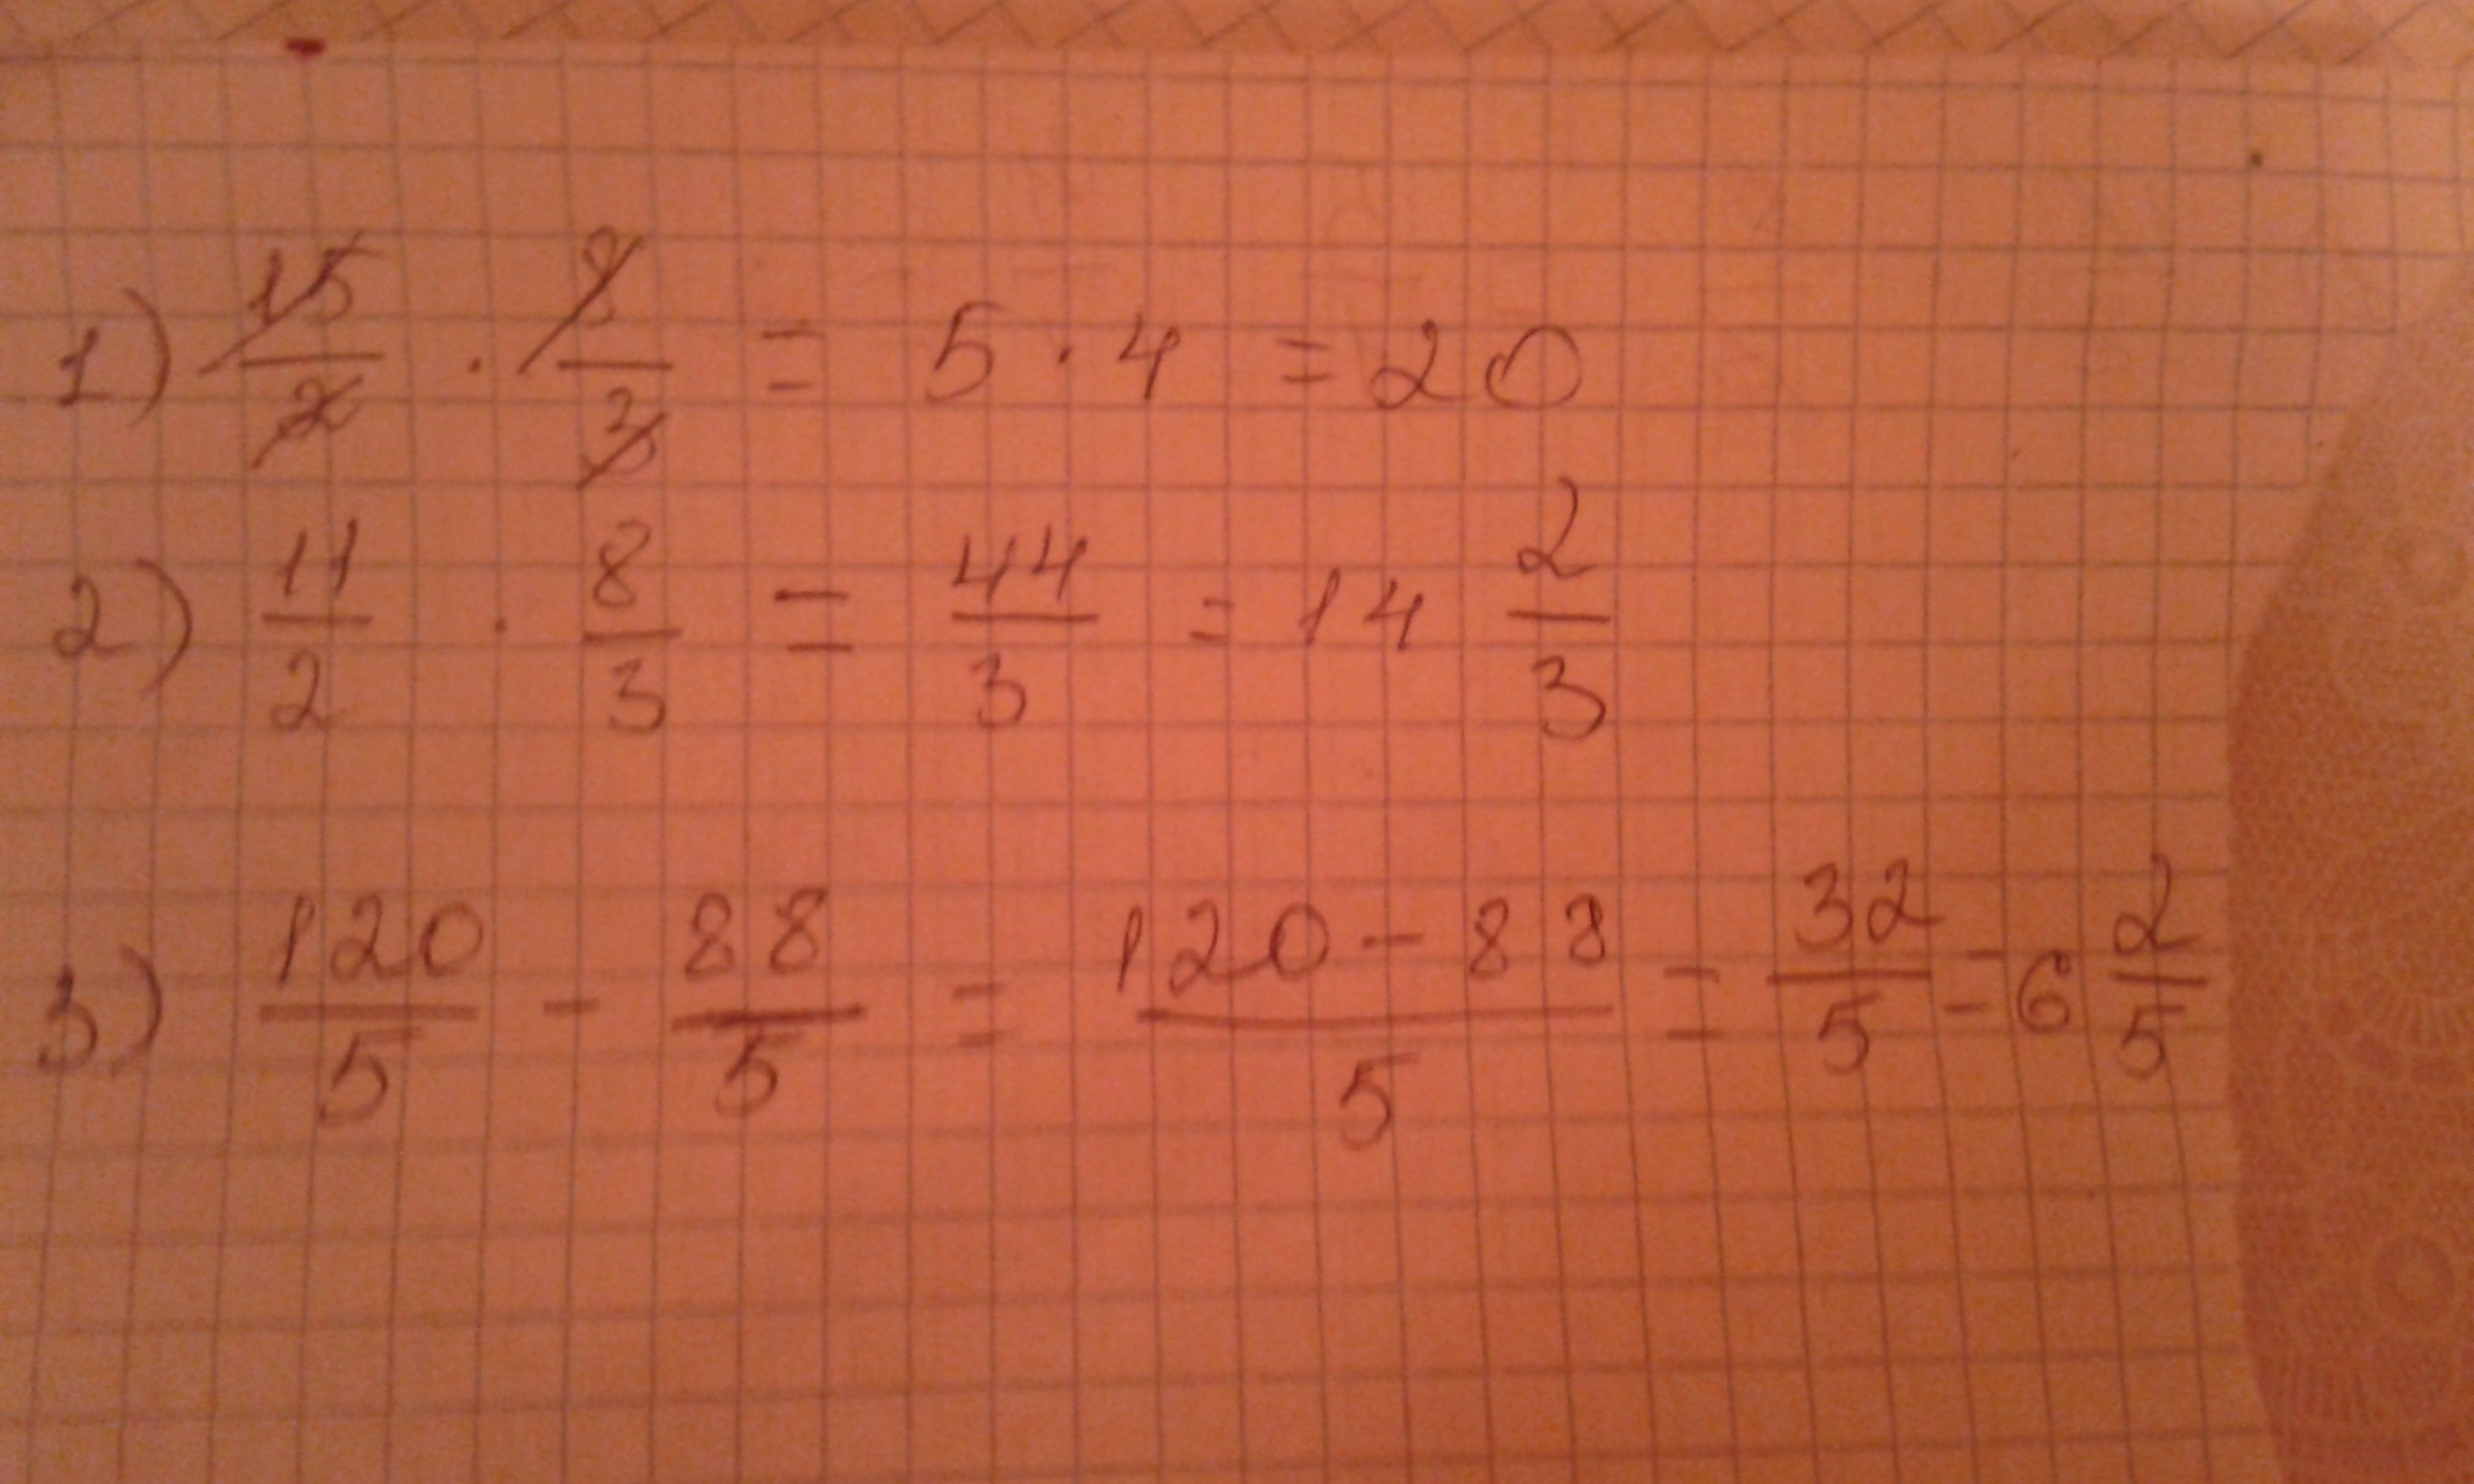 1) 15/2 · 8/3 = 5 · 4 = 20
2) 11/2 · 8/3 = 44/3 = 14 2/3
3) 120/5 - 88/5 = 120 - 88/5 = 32/5 = 6 2/5